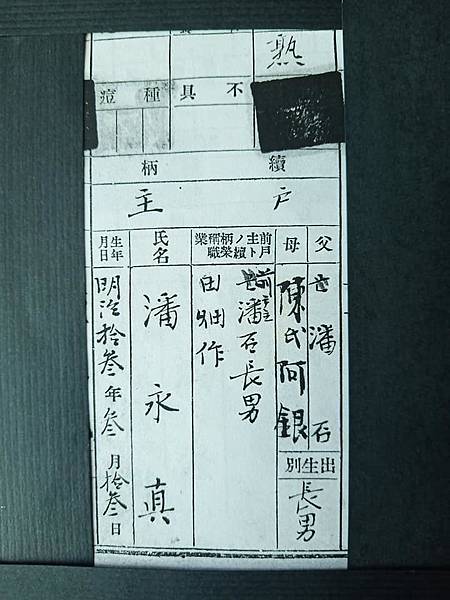 熟
不具
種痘
續柄
戶主
父
潘石
母
陳氏阿銀
出生別
長男
前戶主トノ續柄榮稱職業
潘石長男
田畑作
氏名
潘永真
生年月日
明治拾叁年叁月拾叁日